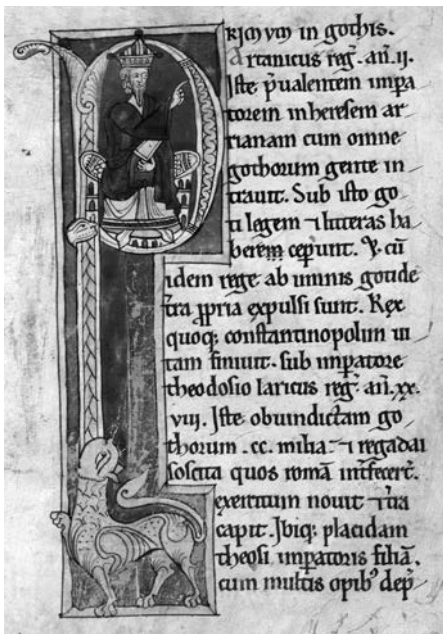 PRIMUM in gothis.
Artanicus reg̃. añ. ii.
Iste p̃ualentem impa
torem in heresem ar
rianam cum omne
gothorum gente in
trauit. Sub isto go
ti legem ⁊ litteras ha
berem cep̃unt. Y. cũ
idem rege ab umnis gotide
t̃ra ꝓpria expulsi sunt. Rex
quoq; constantinopolim ui
tam finiuit. sub impatore
theodosio laricus reg̃. añ. xx.
viii. Iste ob uindictam go
thorum .cc. milia ⁊ regadai
soscita quos romã int̃fecer̃t.
exercitum nouit ⁊
capit. Ibiq; placidam
theosi impatoris filiã.
cum multis opibꝰ dep̃